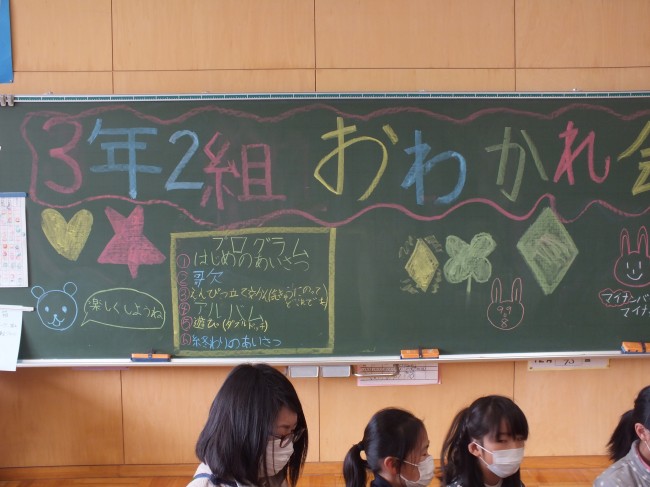 3年2組 おわかれ会
プログラム
①はじめのあいさつ
②歌
③えんぴつ立て
④アルバム
⑤遊び(ダブルドッチ)
⑥終わりのあいさつ
楽しくしようね
マイナンバ
マイナ